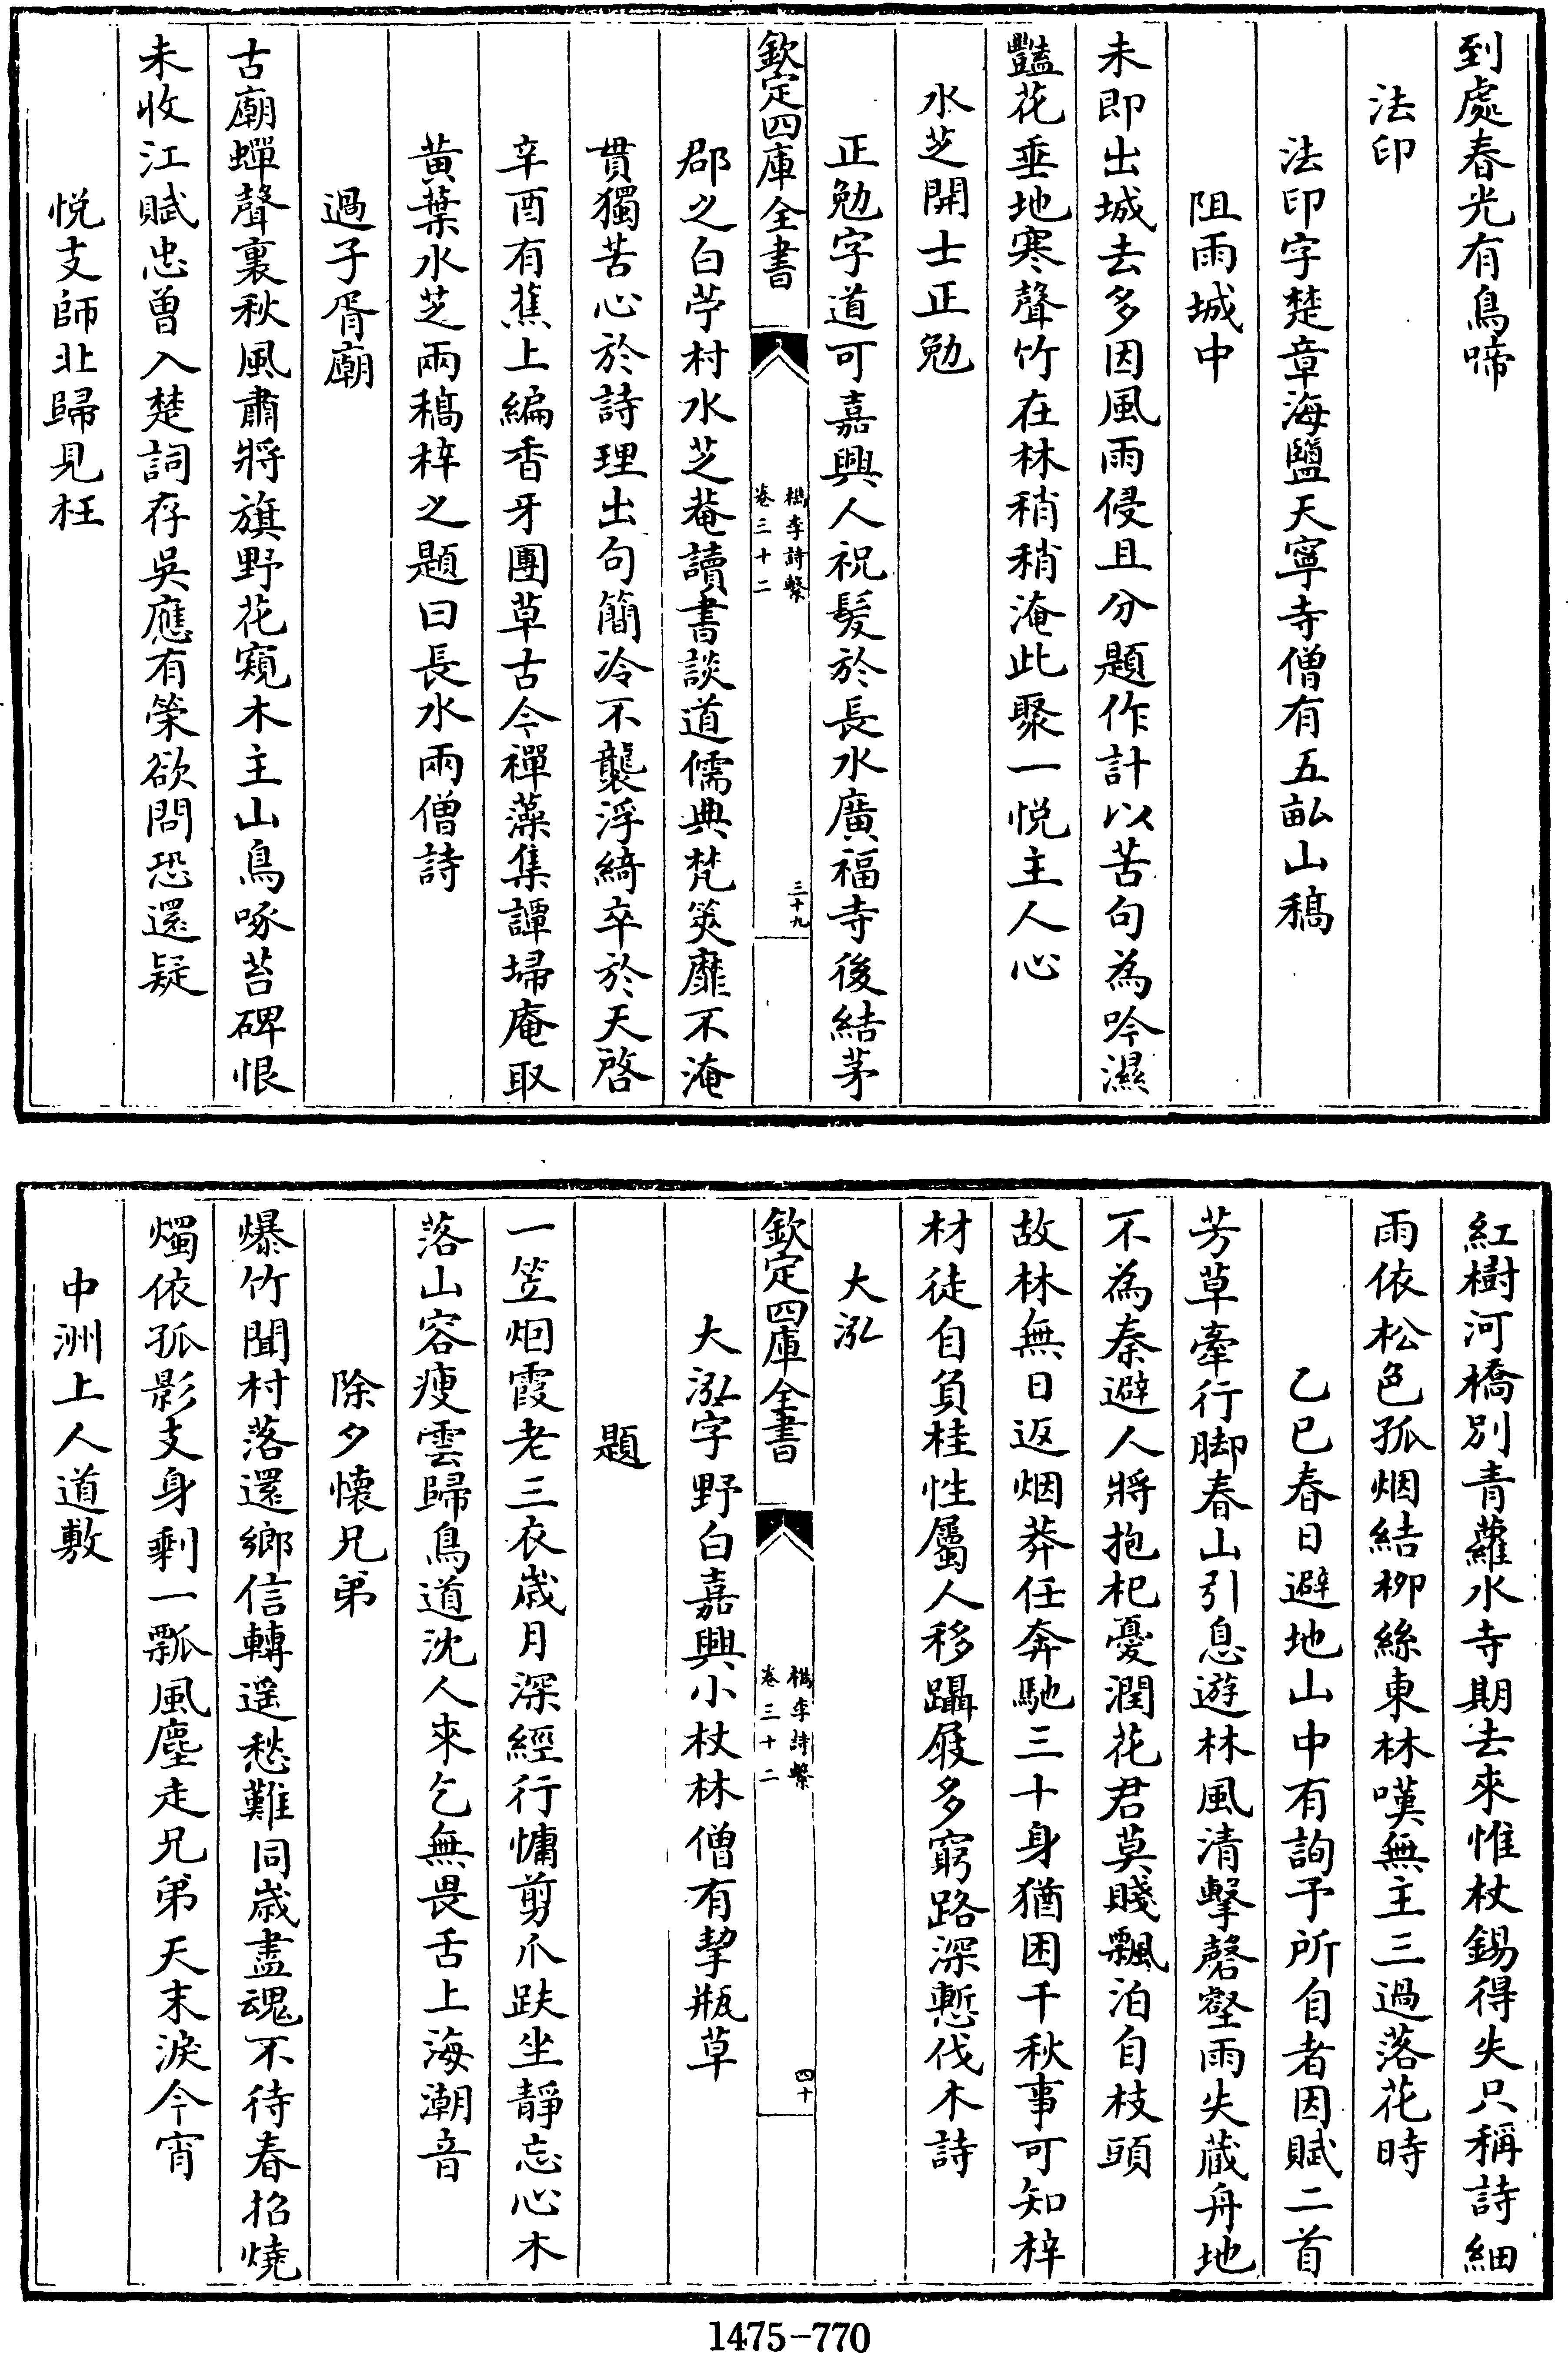 到處春光有鳥啼
法印
法印字楚章海鹽天寧寺僧有五畝山稿
阻雨城中
未即出城去多因風雨侵且分題作計以苦句為吟濕
豔花垂地寒聲竹在林稍稍淹此聚一悦主人心
水芝開士正勉
正勉字道可嘉興人祝髪於長水廣福寺後結茅
欽定四庫全書
檇李詩繫
卷三十二
三十九
郡之白苧村水芝菴讀書談道儒典梵筴靡不淹
貫獨苦心於詩理出句簡冷不襲浮綺卒於天啓
辛酉有蕉上編香牙團草古今禪藻集譚埽庵取
黄葉水芝兩稿梓之題曰長水兩僧詩
過子胥廟
古廟蟬聲裏秋風肅將旗野花窺木主山鳥啄苔碑恨
未收江賦忠曾入楚詞存吳應有䇿欲問恐還疑
悦支師北歸見枉
紅樹河橋别青蘿水寺期去來惟杖錫得失只稱詩細
雨依松色孤烟結栁絲東林嘆無主三過落花時
乙巳春日避地山中有詢予所自者因賦二首
芳草牽行脚春山引息遊林風清擊磬壑雨失蔵舟地
不為秦避人將抱杞憂澗花君莫賤飄泊自枝頭
故林無日返烟莽任奔馳三十身猶困千秋事可知梓
材徒自負桂性屬人移躡屐多窮路深慙伐木詩
大泓
欽定四庫全書
檇李詩繫
卷三十二
四十
大泓字野白嘉興小杖林僧有挈瓶草
題
一笠烟霞老三衣歳月深經行慵剪爪趺坐靜忘心木
落山容瘦雲歸鳥道沈人來乞無畏舌上海潮音
除夕懐兄弟
爆竹聞村落還鄉信轉遥愁難同歳盡魂不待春招燒
燭依孤影支身剩一瓢風塵走兄弟天末淚今宵
中洲上人道敷
1475-770